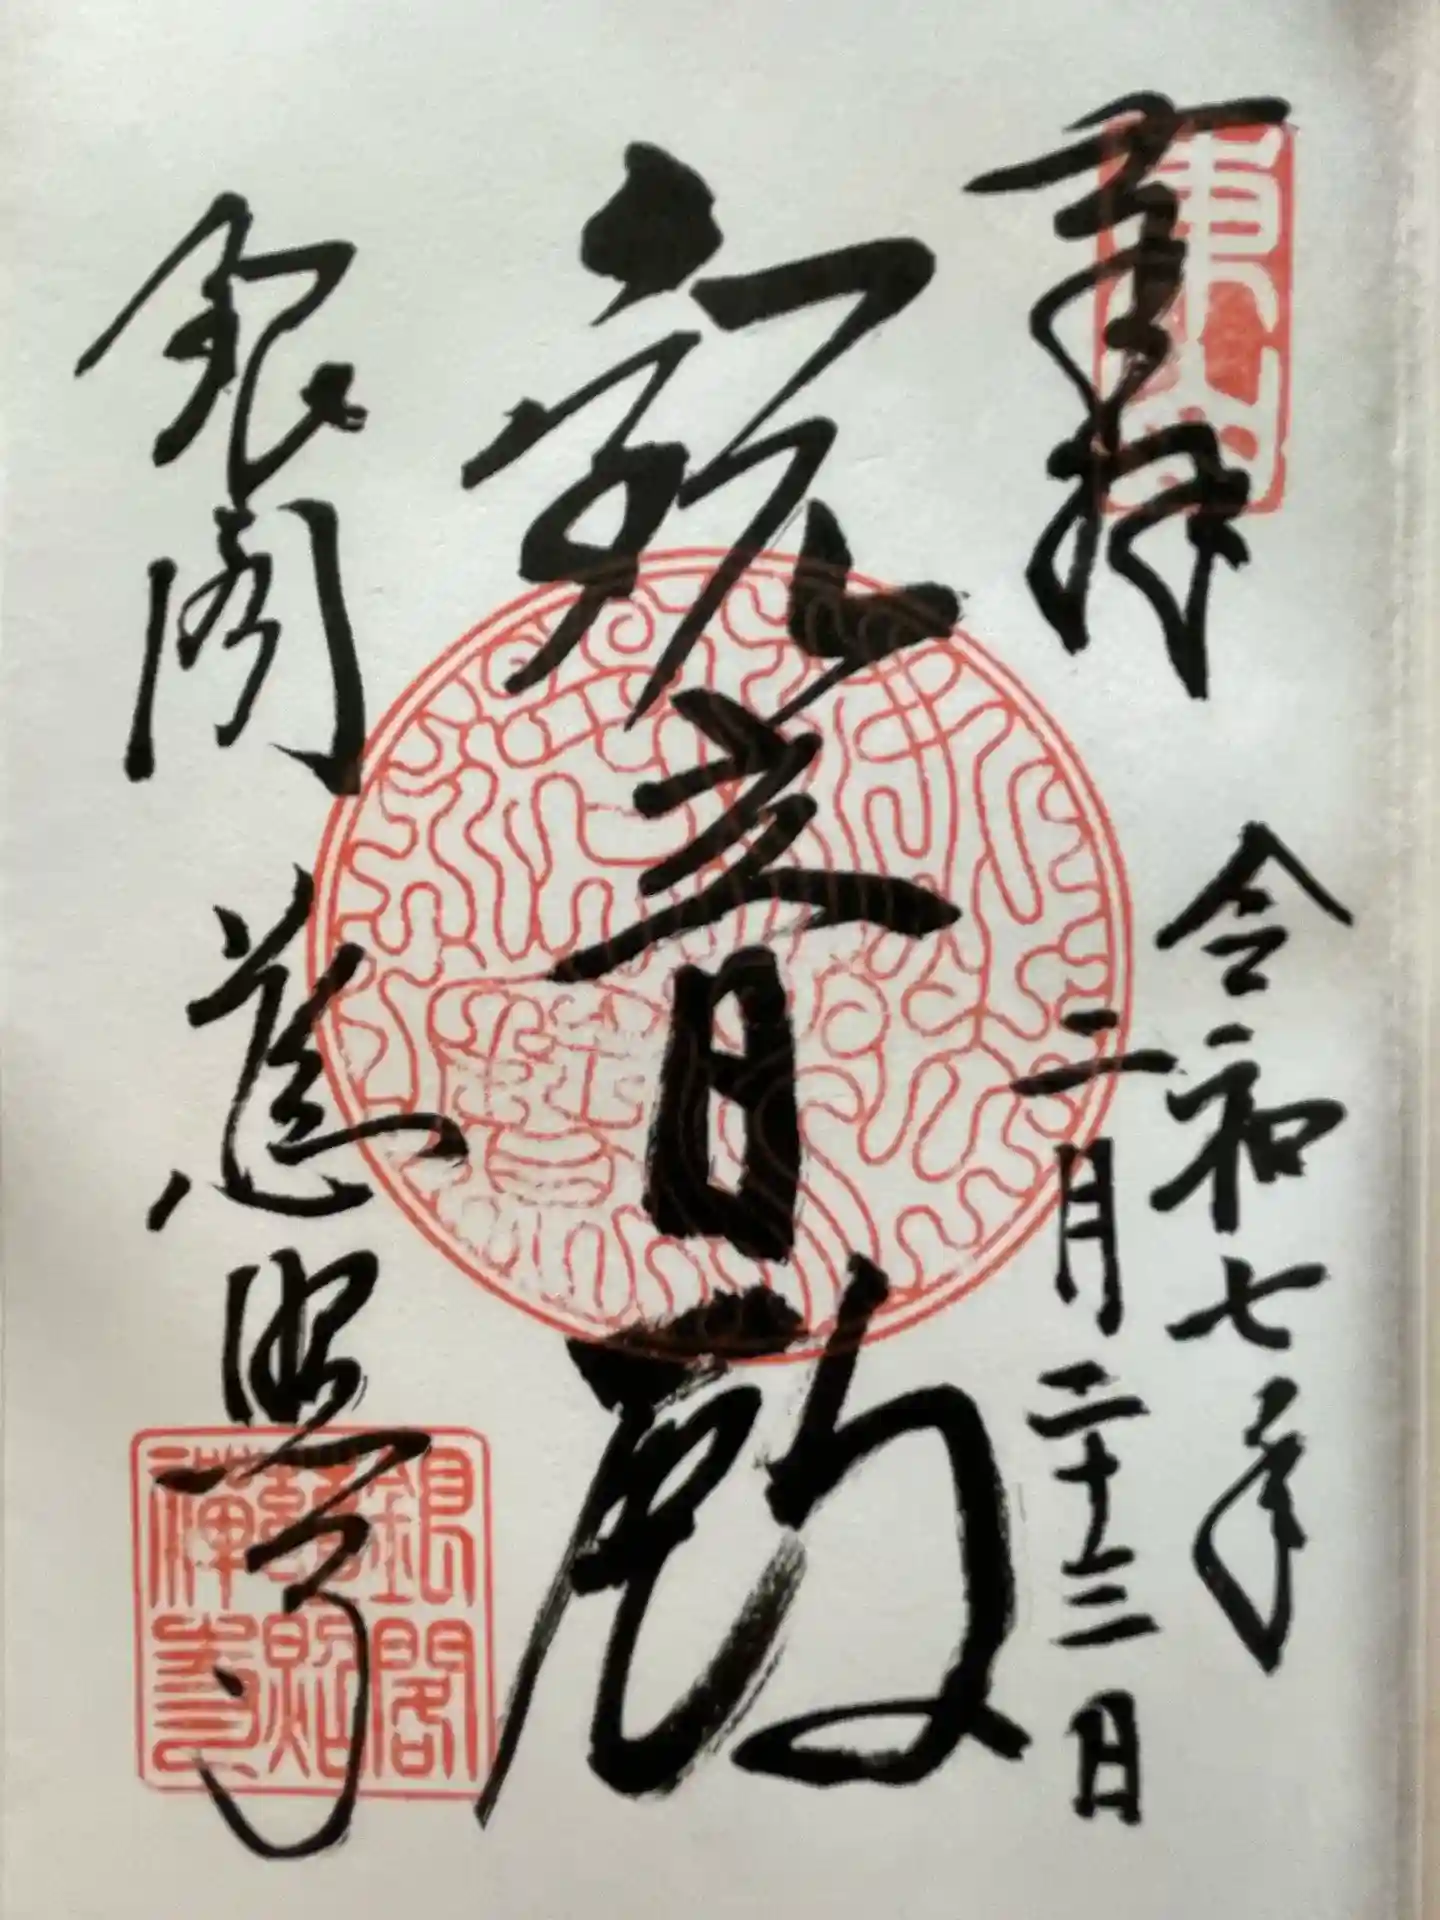 奉拝
東山
令和七年
二月二十三日
観音殿
銀閣 慈照寺
銀閣
慈照
禪寺